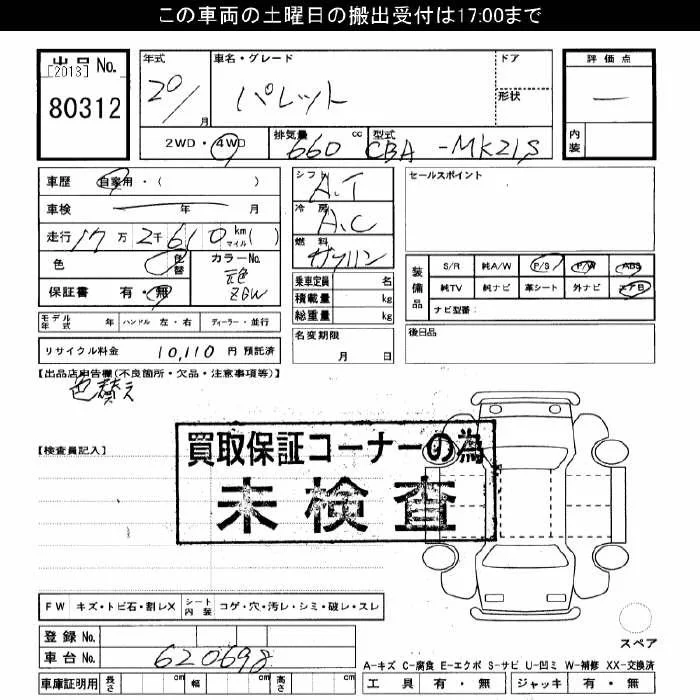 この車両の土曜日の搬出受付は17:00まで
出品No.
[2013]
80312
年式
20/
月
車名・グレード
パレット
ドア
形状
2WD・4WD
排気量
660 cc
型式
CBA-MK21S
評価点
一
内装
車歴 自家用・( )
車検 年 月
走行 17万2千610 km マイル( )
色 色替
カラーNo.
元色
ZGW
保証書 有・無
シフト
A.T
冷房
A.C
燃料
ガソリン
乗車定員 名
積載量 kg
総重量 kg
セールスポイント
装備品
S/R 純A/W P/S P/W ABS
純TV 純ナビ 革シート 外ナビ エアB
ナビ型番:
モデル年式 年 ハンドル 左・右 ディーラー・並行
リサイクル料金 10,110 円 預託済
名変期限
月 日
後日品
【出品店申告欄(不良箇所・欠品・注意事項等)】
色替え
【検査員記入】
買取保証コーナーの為
未検査
FW キズ・トビ石・割レX シート内装 コゲ・穴・汚レ・シミ・破レ・スレ
登録No.
車台No. 620698
車庫証明用 長さ cm 幅 cm 高さ cm
スペア
A-キズ C-腐食 E-エクボ S-サビ U-凹ミ W-補修 XX-交換済
工具 有・無 ジャッキ 有・無